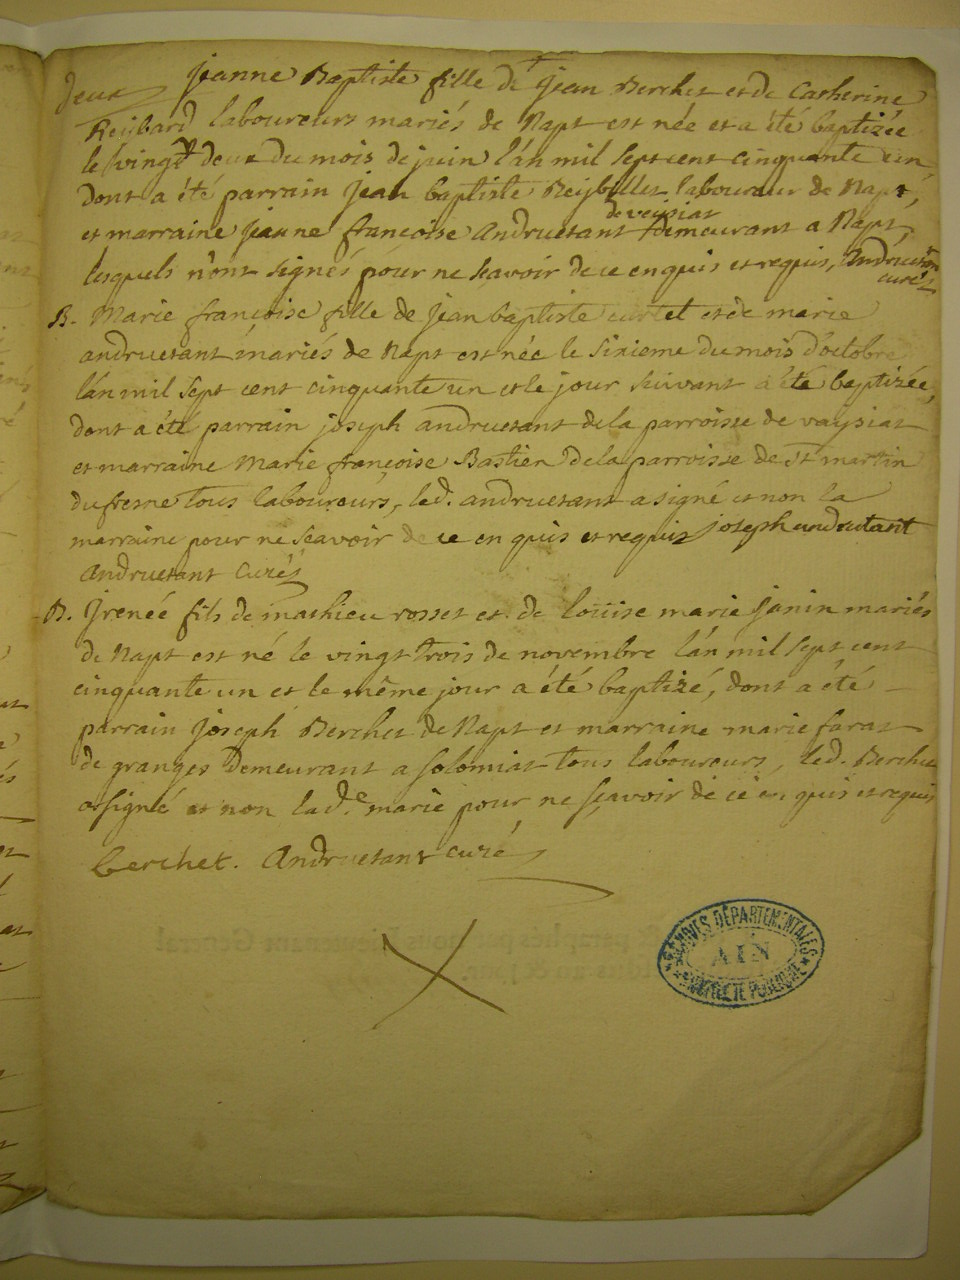 deux
Jeanne Baptiste fille de Jean Berchet et de Catherine
Reybard laboureurs mariés de Napt est née et a été baptizée
le vingt deux du mois de juin l'an mil sept cent cinquante un
dont a été parrain Jean baptiste Reybillet laboureur de Napt,
de veisiat
et marraine jeanne françoise Andruetant demeurant a Napt
lesquels n'ont signés pour ne sçavoir de ce enquis et requis, Andruetan
curé
B. Marie françoise fille de jean baptiste curtet et de marie
andruetant mariés de Napt est née le sixieme du mois d'octobre
l'an mil sept cent cinquante un et le jour suivant a été baptizée,
dont a été parrain joseph andruetant de la parroisse de vaysiat
et marraine Marie françoise Bastien de la parroisse de st martin
du fresne tous laboureurs, led. andruetant a signé et non la
marraine pour ne sçavoir de ce enquis et requis joseph andrutant
Andruetant Curé
B. jrenée fils de mathieu rosset et de loüise marie janin mariés
de Napt est né le vingt trois de novembre l'an mil sept cent
cinquante un et le même jour a été baptizé, dont a été
parrain joseph Berchet de Napt et marraine marie farat
de granges demeurant a solomiat tous laboureurs, led. Berchet
a signé et non lade. marie pour ne sçavoir de ce enquis et requis
berchet. Andruetant curé
ARCHIVES DÉPARTEMENTALES
AIN
PROPRIÉTÉ PUBLIQUE